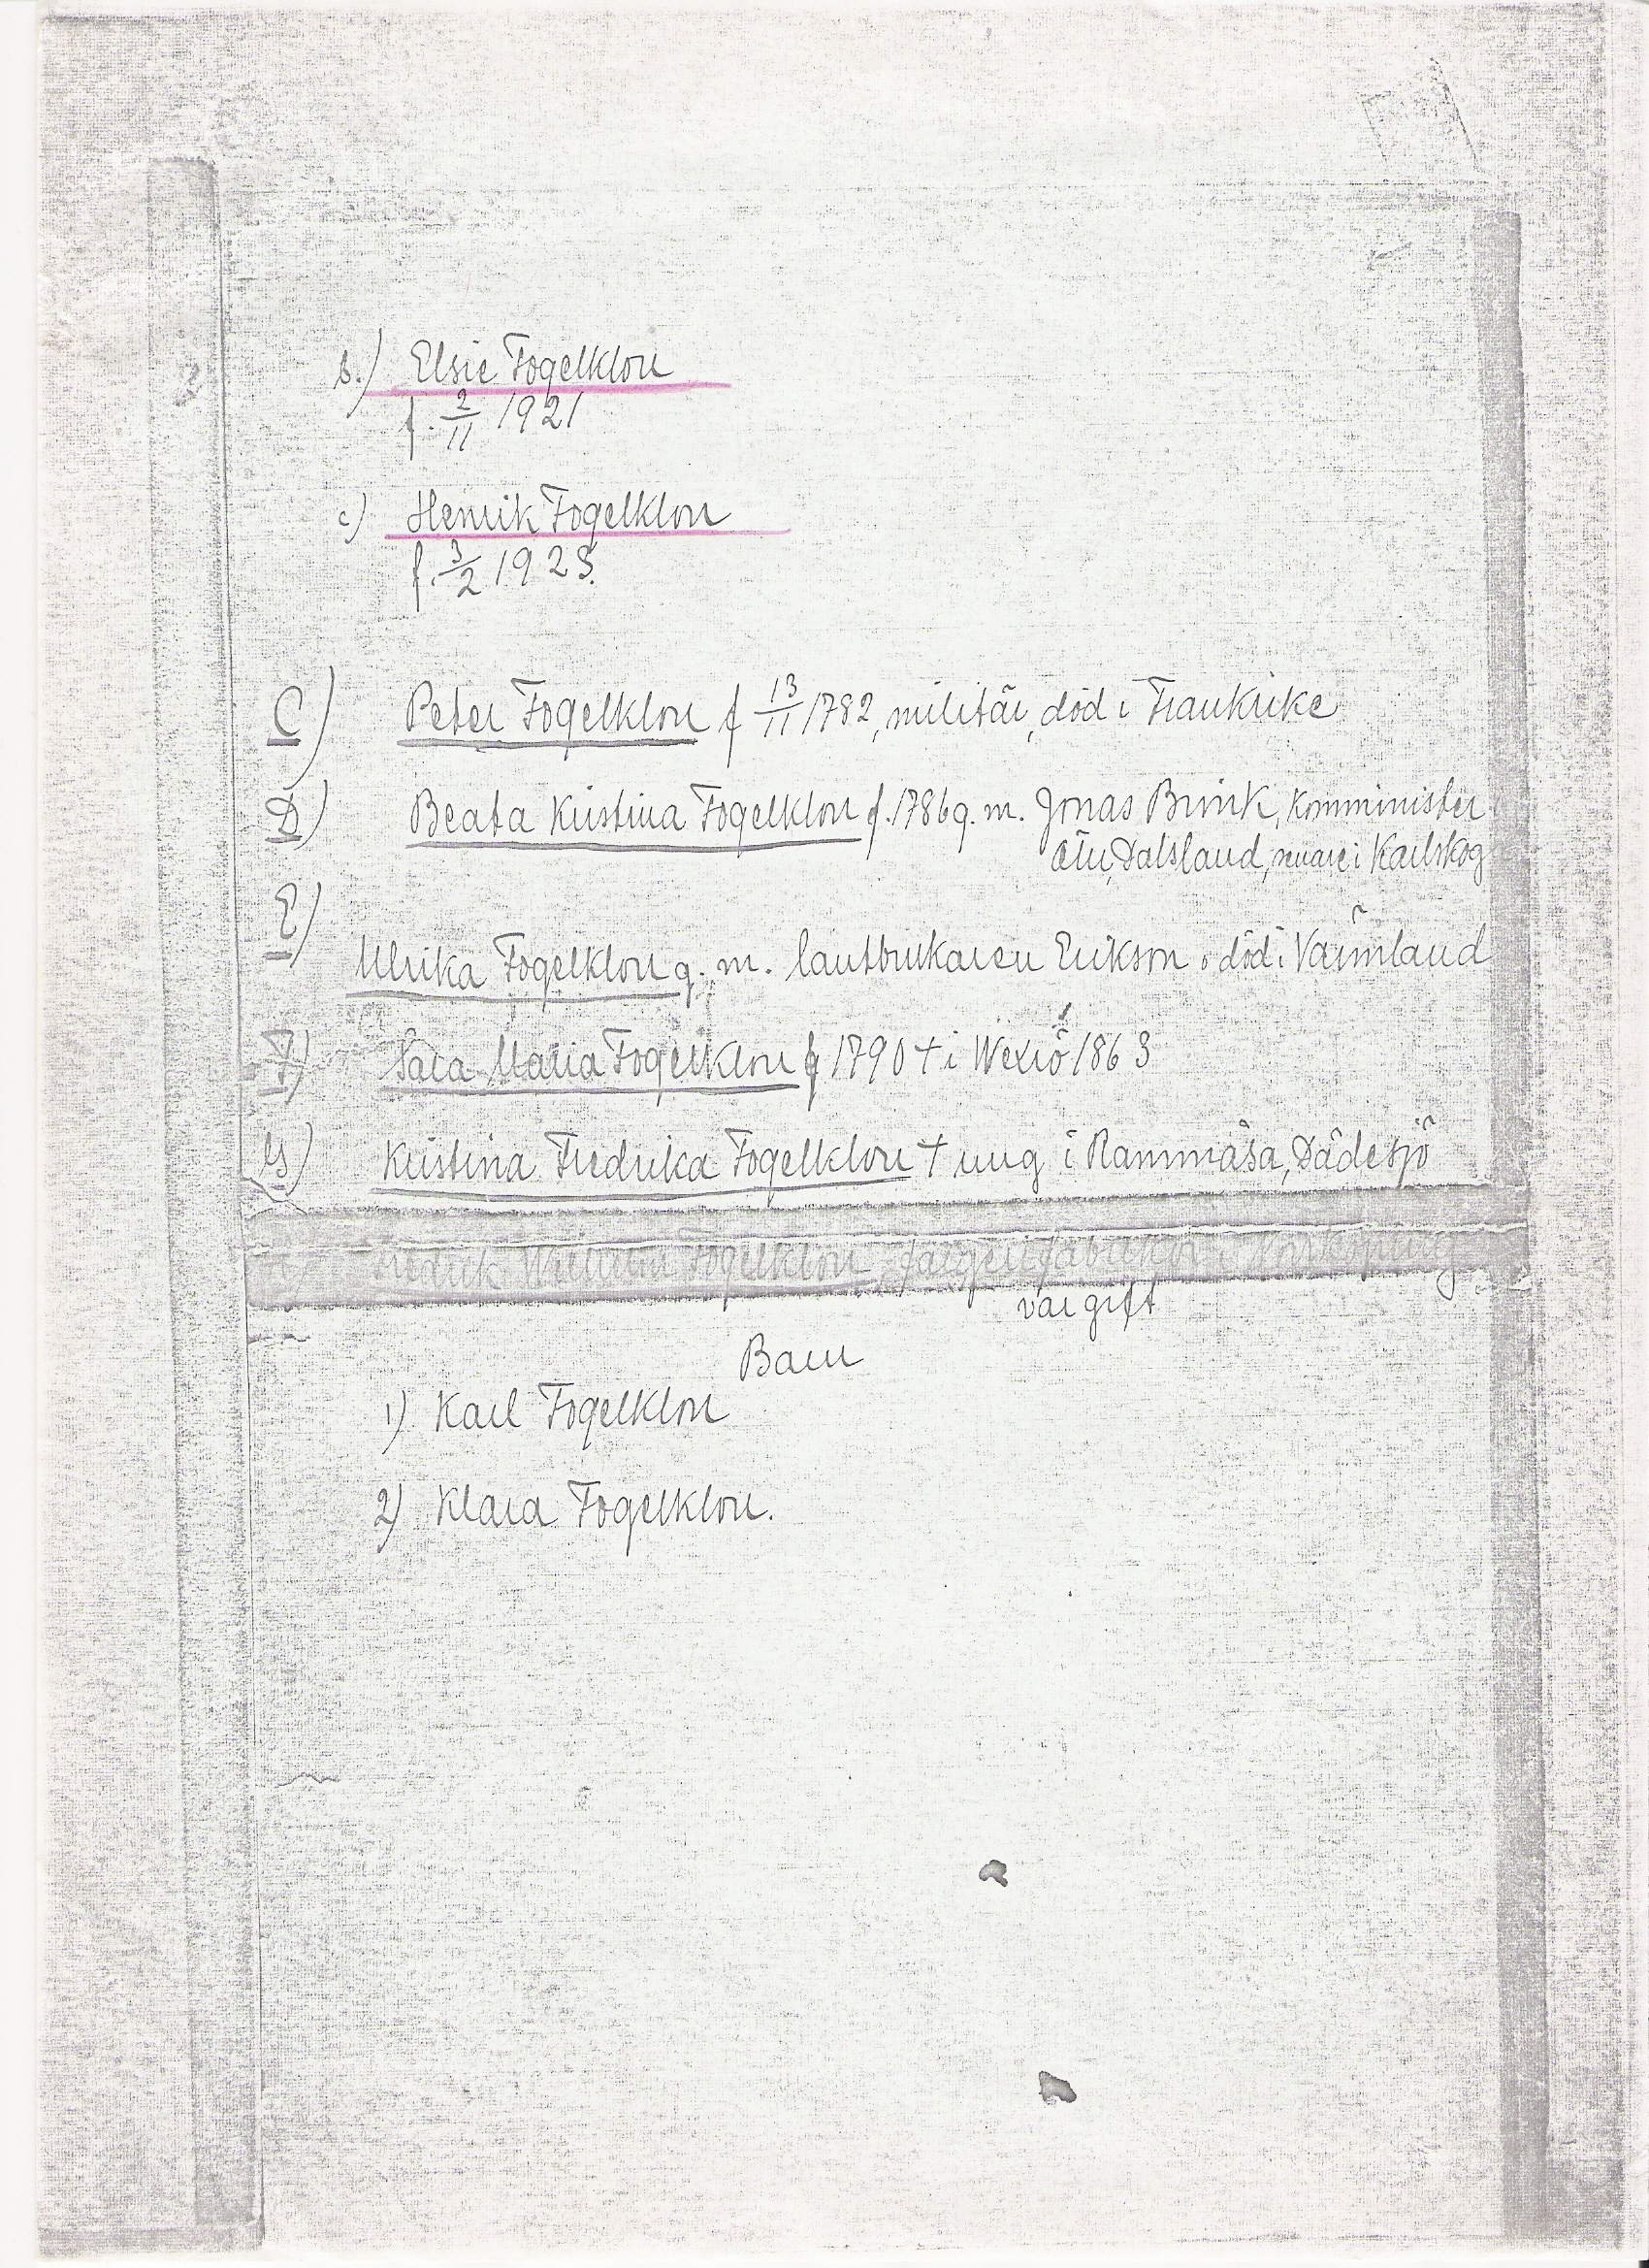 b.) Elsie Fogelklou
f. 2/11 1921
c) Henrik Fogelklou
f. 3/2 1925.
C) Peter Fogelklou f 13/11 1782, militär, död i Frankrike
D) Beata Kristina Fogelklou f. 1786 g. m. Jonas Brink, Komminister
Ör, Dalsland, senare i Karlskog
E)
Ulrika Fogelklou g. m. lantbrukaren Erikson, död i Värmland
F) Sara Maria Fogelklou f 1790 † i Wexiö 1863
G) Kristina Fredrika Fogelklou † ung i Rammåsa, Dädesjö
Fredrik Wilhelm Fogelklou, färgerifabrikör i Norrköping
var gift
Barn
1) Karl Fogelklou
2) Klara Fogelklou.